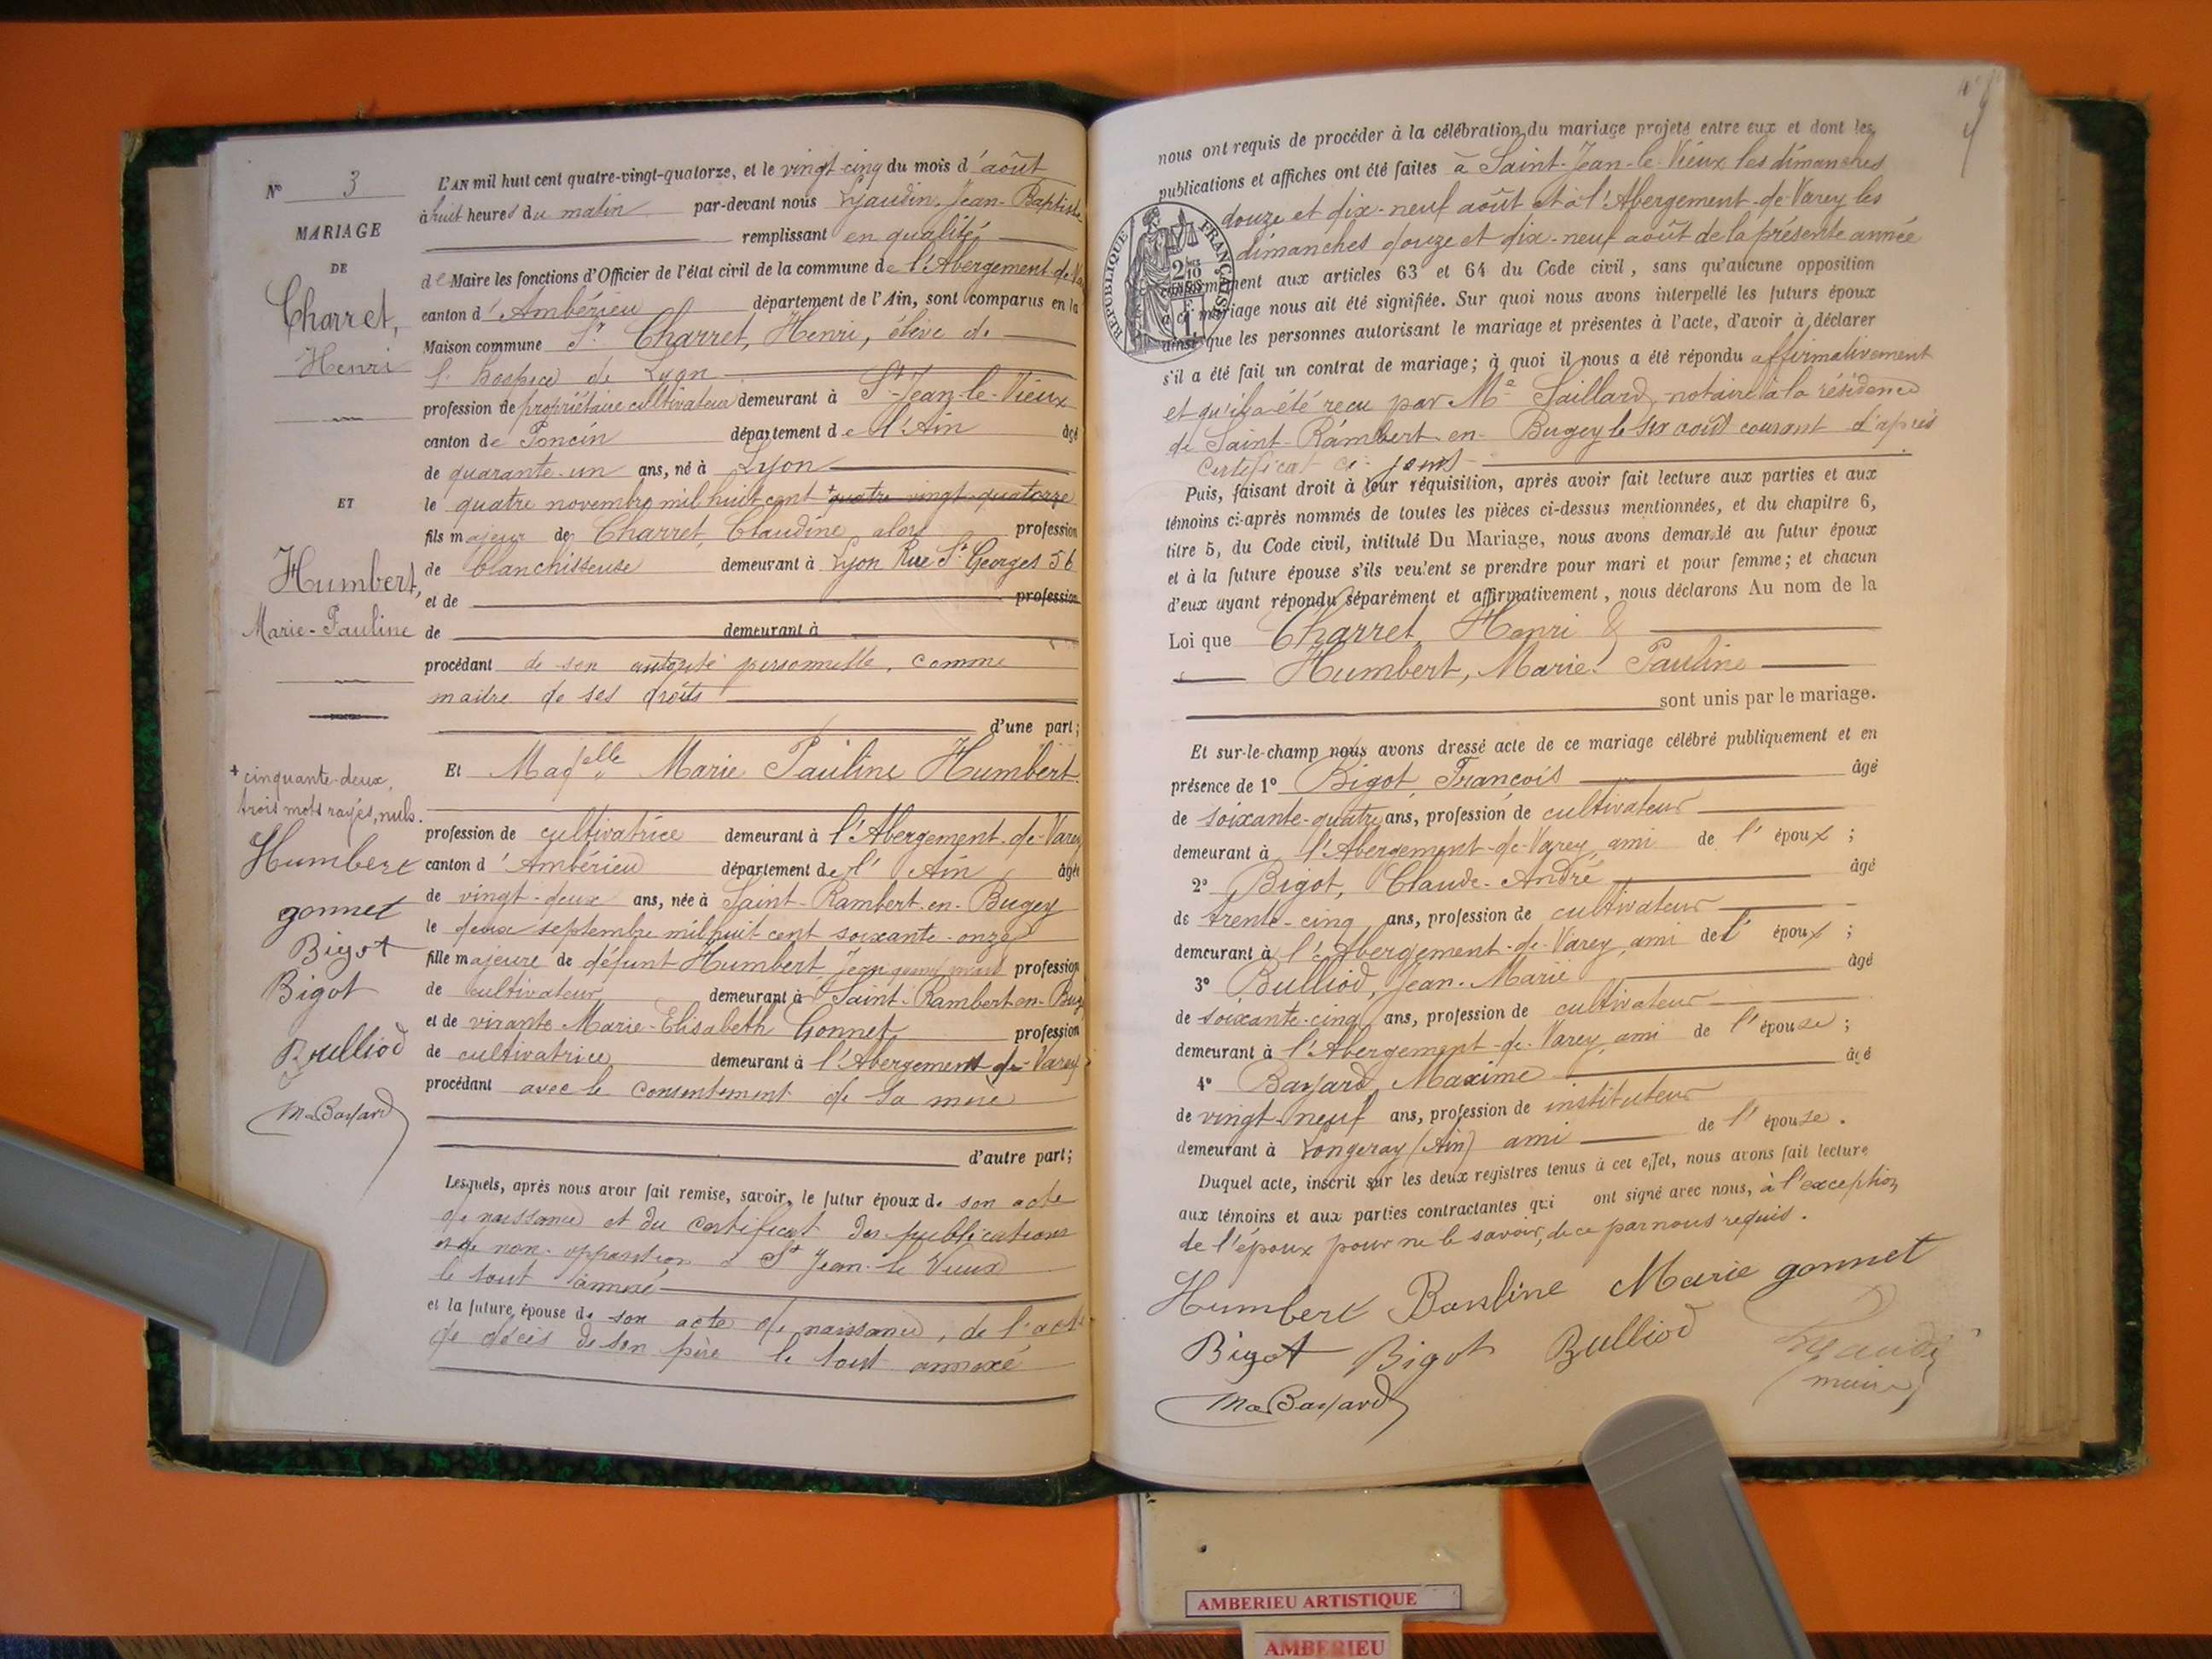 N° 3
MARIAGE
DE
Charret,
Henri
ET
Humbert,
Marie-Pauline
+ cinquante-deux,
trois mots rayés, nuls.
Humbert
gonnet
Bigot
Bigot
Bulliod
Ma Bayard
L'AN mil huit cent quatre-vingt-quatorze, et le vingt-cinq du mois d'août
à huit heures du matin par-devant nous Lyaudin, Jean-Baptiste
remplissant en qualité
de Maire les fonctions d'Officier de l'état civil de la commune de l'Abergement-de-Va
canton d'Ambérieu département de l'Ain, sont comparus en la
Maison commune Sr Charret, Henri, élève de
l'hospice de Lyon
profession de propriétaire cultivateur demeurant à St-Jean-le-Vieux
canton de Poncin département de l'Ain âgé
de quarante-un ans, né à Lyon
le quatre novembre mil huit cent + quatre-vingt-quatorze
fils majeur de Charret, Claudine alors profession
de blanchisseuse demeurant à Lyon Rue St Georges 56
et de profession
de demeurant à
procédant de son autorité personnelle, comme
maitre de ses droits
d'une part;
Et Madelle Marie Pauline Humbert
profession de cultivatrice demeurant à l'Abergement-de-Varey
canton d'Ambérieu département de l'Ain âgée
de vingt-deux ans, née à Saint-Rambert-en-Bugey
le deux septembre mil huit cent soixante-onze
fille majeure de défunt Humbert, Jean profession
de cultivateur demeurant à Saint-Rambert-en-Bug
et de vivante Marie-Elisabeth Gonnet profession
de cultivatrice demeurant à l'Abergement-de-Varey
procédant avec le consentement de sa mère
d'autre part;
Lesquels, après nous avoir fait remise, savoir, le futur époux de son acte
de naissance et du certificat des publications
et de non-opposition à St Jean-le-Vieux
le tout annexé
et la future épouse de son acte de naissance, de l'acte
de décès de son père le tout annexé
nous ont requis de procéder à la célébration du mariage projeté entre eux et dont les
publications et affiches ont été faites à Saint-Jean-le-Vieux les dimanches
douze et dix-neuf août et à l'Abergement-de-Varey les
dimanches douze et dix-neuf août de la présente année
conformément aux articles 63 et 64 du Code civil, sans qu'aucune opposition
à ce mariage nous ait été signifiée. Sur quoi nous avons interpellé les futurs époux
ainsi que les personnes autorisant le mariage et présentes à l'acte, d'avoir à déclarer
s'il a été fait un contrat de mariage; à quoi il nous a été répondu affirmativement
et qu'il a été reçu par Me Saillard, notaire à la résidence
de Saint-Rambert-en-Bugey le six août courant d'après
certificat ci-joint
RÉPUBLIQUE FRANÇAISE
Puis, faisant droit à leur réquisition, après avoir fait lecture aux parties et aux
témoins ci-après nommés de toutes les pièces ci-dessus mentionnées, et du chapitre 6,
titre 5, du Code civil, intitulé Du Mariage, nous avons demandé au futur époux
et à la future épouse s'ils veulent se prendre pour mari et pour femme; et chacun
d'eux ayant répondu séparément et affirmativement, nous déclarons Au nom de la
Loi que Charret, Henri &
Humbert, Marie Pauline
sont unis par le mariage.
Et sur-le-champ nous avons dressé acte de ce mariage célébré publiquement et en
présence de 1° Bigot François âgé
de soixante-quatre ans, profession de cultivateur
demeurant à l'Abergement-de-Varey, ami de l'époux;
2° Bigot, Claude-André âgé
de trente-cinq ans, profession de cultivateur
demeurant à l'Abergement-de-Varey, ami de l'époux;
3° Bulliod, Jean-Marie âgé
de soixante-cinq ans, profession de cultivateur
demeurant à l'Abergement-de-Varey, ami de l'épouse;
4° Bayard, Maxime âgé
de vingt-neuf ans, profession de instituteur
demeurant à Longeray (Ain) ami de l'épouse.
Duquel acte, inscrit sur les deux registres tenus à cet effet, nous avons fait lecture
aux témoins et aux parties contractantes qui ont signé avec nous, à l'exception
de l'époux pour ne le savoir, de ce par nous requis.
Humbert Pauline Marie gonnet
Bigot Bigot Bulliod
maire
Ma Bayard
AMBERIEU ARTISTIQUE
AMBERIEU